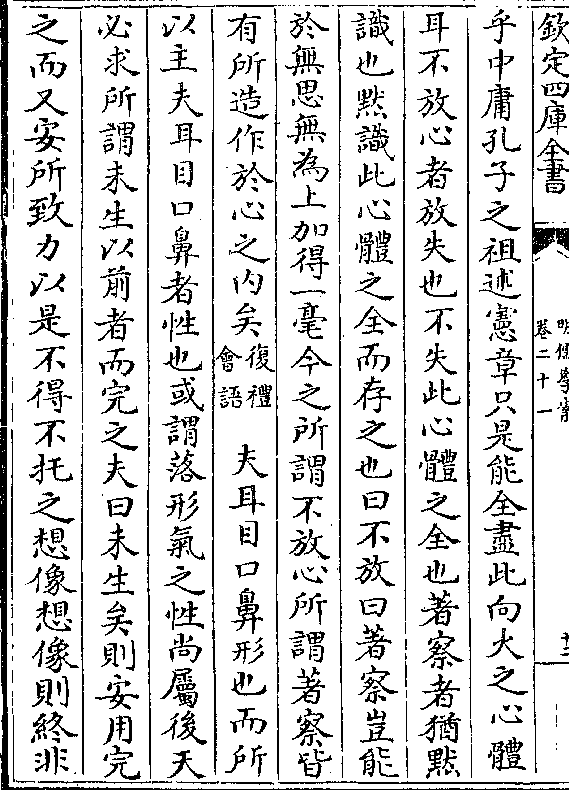 欽定四庫全書
明儒學案
卷二十一
乎中庸孔子之祖述憲章只是能全盡此向大之心體
耳不放心者放失也不失此心體之全也著察者猶默
識也默識此心體之全而存之也曰不放曰著察豈能
於無思無為上加得一毫今之所謂不放心所謂著察皆
有所造作於心之内矣復禮會語　夫耳目口鼻形也而所
以主夫耳目口鼻者性也或謂落形氣之性尚屬後天
必求所謂未生以前者而完之夫曰未生矣則安用完
之而又安所致力以是不得不托之想像想像則終非